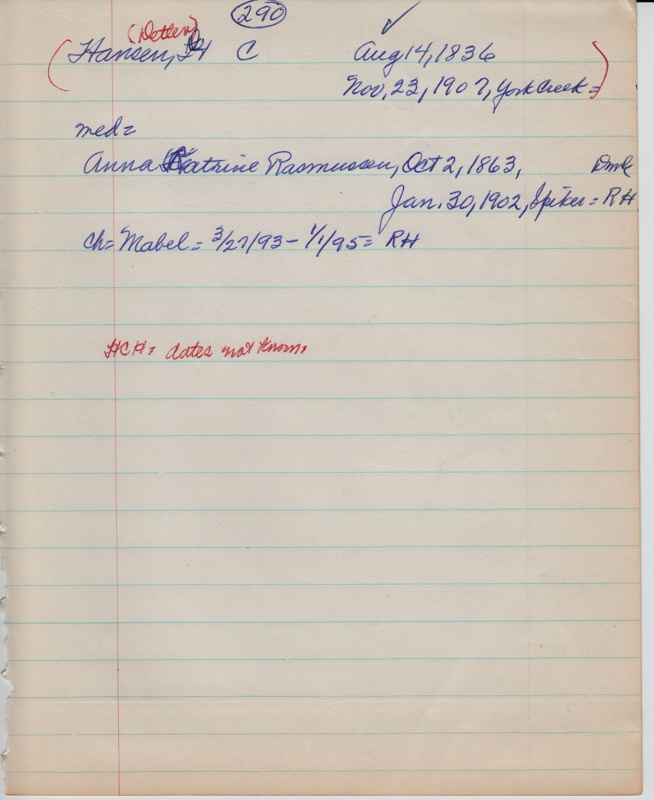 290
(Detlev)
(Hansen, H C Aug 14, 1836
Nov, 23, 1907, York Creek=)
med=
Anna Katrine Rasmussen, Oct 2, 1863, Dmk
Jan. 30, 1902, Spiker = RH
Ch= Mabel = 3/27/93 - 1/1/95 = RH
HCH= dates not known.